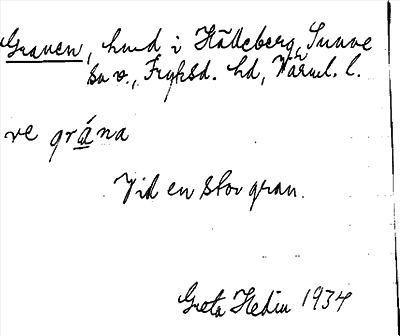 Granen, hmd i Hälleberg, Sunne
sn o., Fryksd. hd, Värml. l.
ve grána
Vid en stor gran.
Greta Hedin 1934